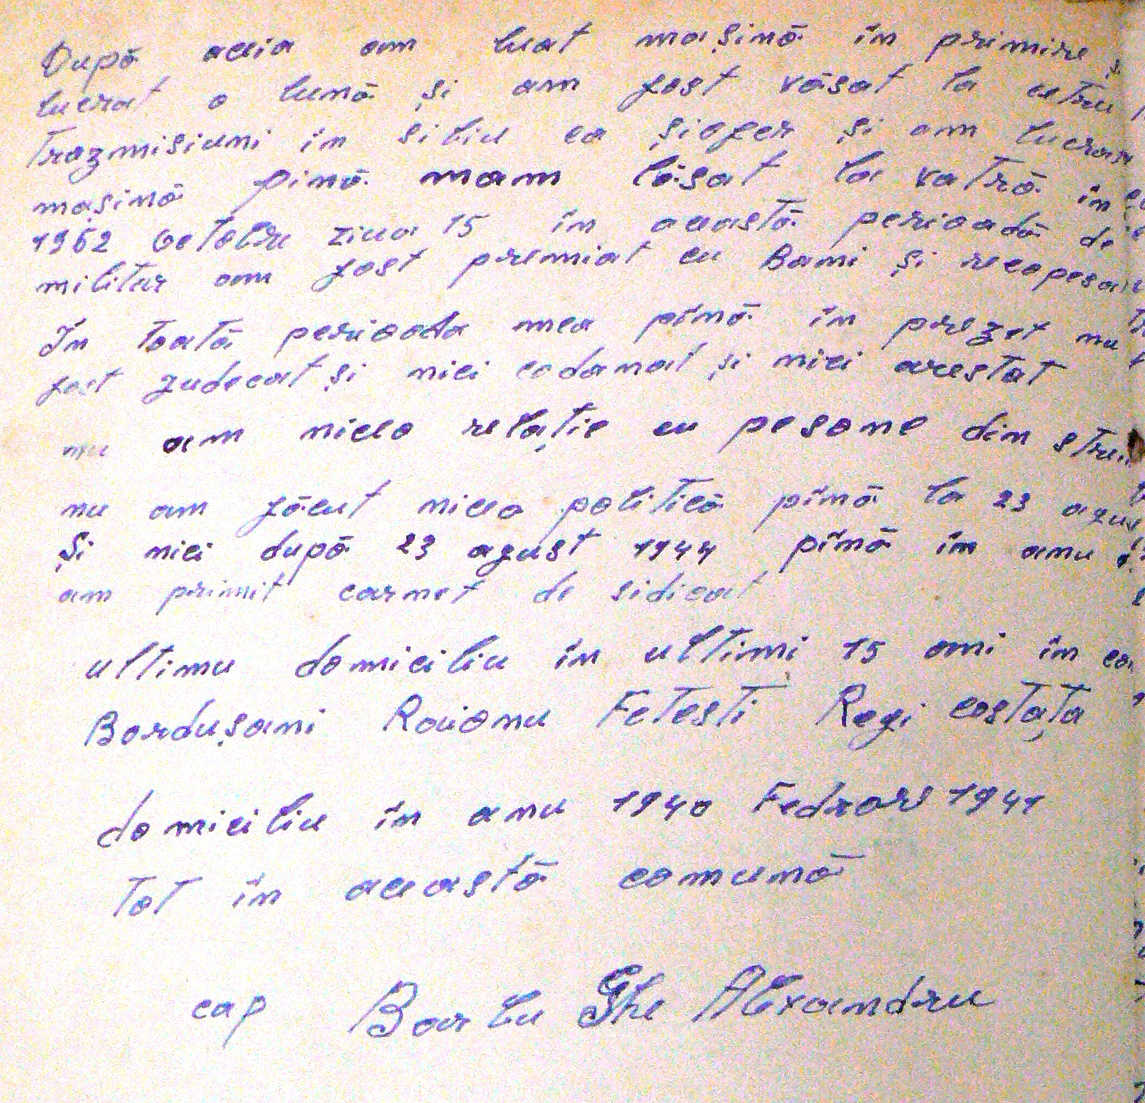 După aceia am luat mașină în primire și
lucrat o lună și am fost văsat la cetru
Trazmisiuni în sibiu ca șiofer și am lucrat
mașină pină mam lăsat la vatră în
1952 Octobre ziua 15 în această perioadă de
militar am fost premiat cu Bami și recopesa
În toată perioada mea pînă în prezet nu
fost judecat și nici codamat și nici arestat
nu am nicio relație cu pesone din strei
nu am făcut nicio politică pînă la 23 agus
Și nici după 23 agust 1944 pînă in anu
am primit carnet de sidicat
ultimu domiciliu în ultimi 15 ani în co
Bordușani Raionu Fetesti Regi costața
domiciliu în anu 1940 Fedrore 1941
Tot în această comună
cap Barbu Ghe Alexandru